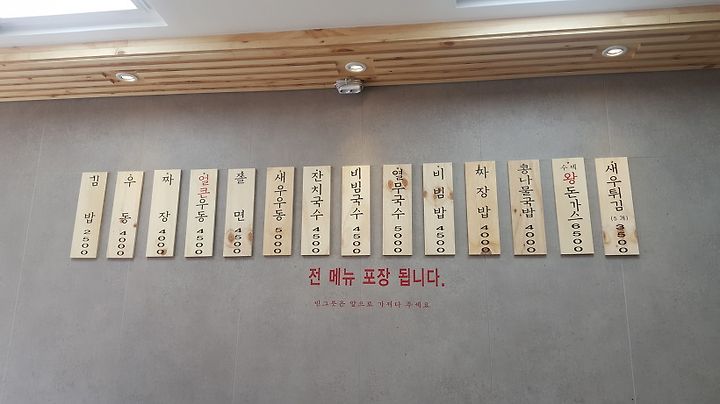 김밥 2500
우동 4000
짜장 4000
얼큰우동 4500
쫄면 4500
새우우동 5000
잔치국수 4500
비빔국수 4500
열무국수 5000
비빔밥 4500
짜장밥 4000
콩나물국밥 4000
수제왕돈가스 6500
새우튀김 (5개) 3500
전 메뉴 포장 됩니다.
빈그릇은 앞으로 가져다 주세요